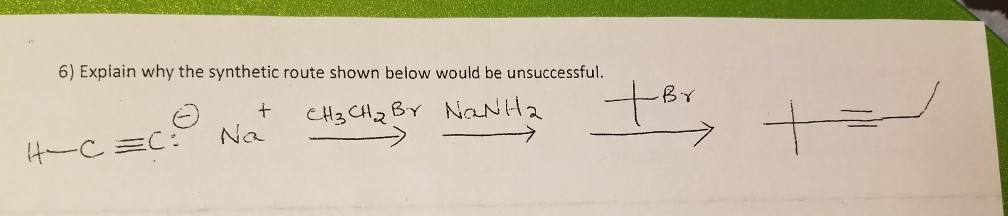 6) Explain why the synthetic route shown below would be unsuccessful.
H-C≡C:⊖ Na+ CH3CH2Br NaNH2 Br